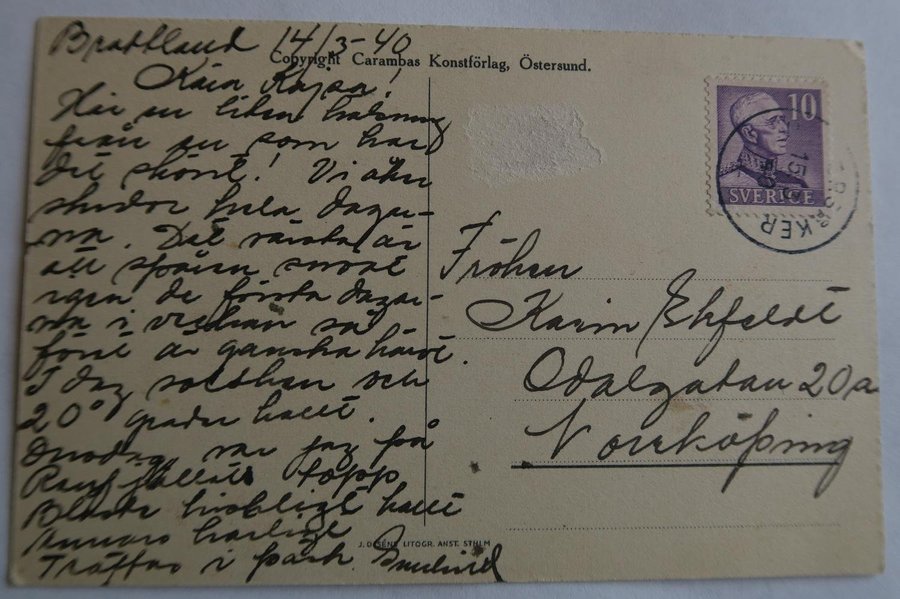 Brattland 14/3-40
Copyright Carambas Konstförlag, Östersund.
Kära Kajsa!
Här en liten hälsning
från en som har
det skönt! Vi åker
skidor hela dagar-
na. Det värsta är
att spåren snöat
igen de första dagar-
na i veckan så
föret är ganska hårt.
I dag solsken och
20° grader kallt.
Onsdag var jag på
Renfjällets topp
Blåste hiskligt kallt
annars härligt
Träffas i påsk.
10
SVERIGE
15 3
KER
Fröken
Karin Ekfeldt
Odalgatan 20a
Norrköping
J. OLSÉNS LITOGR. ANST. STHLM